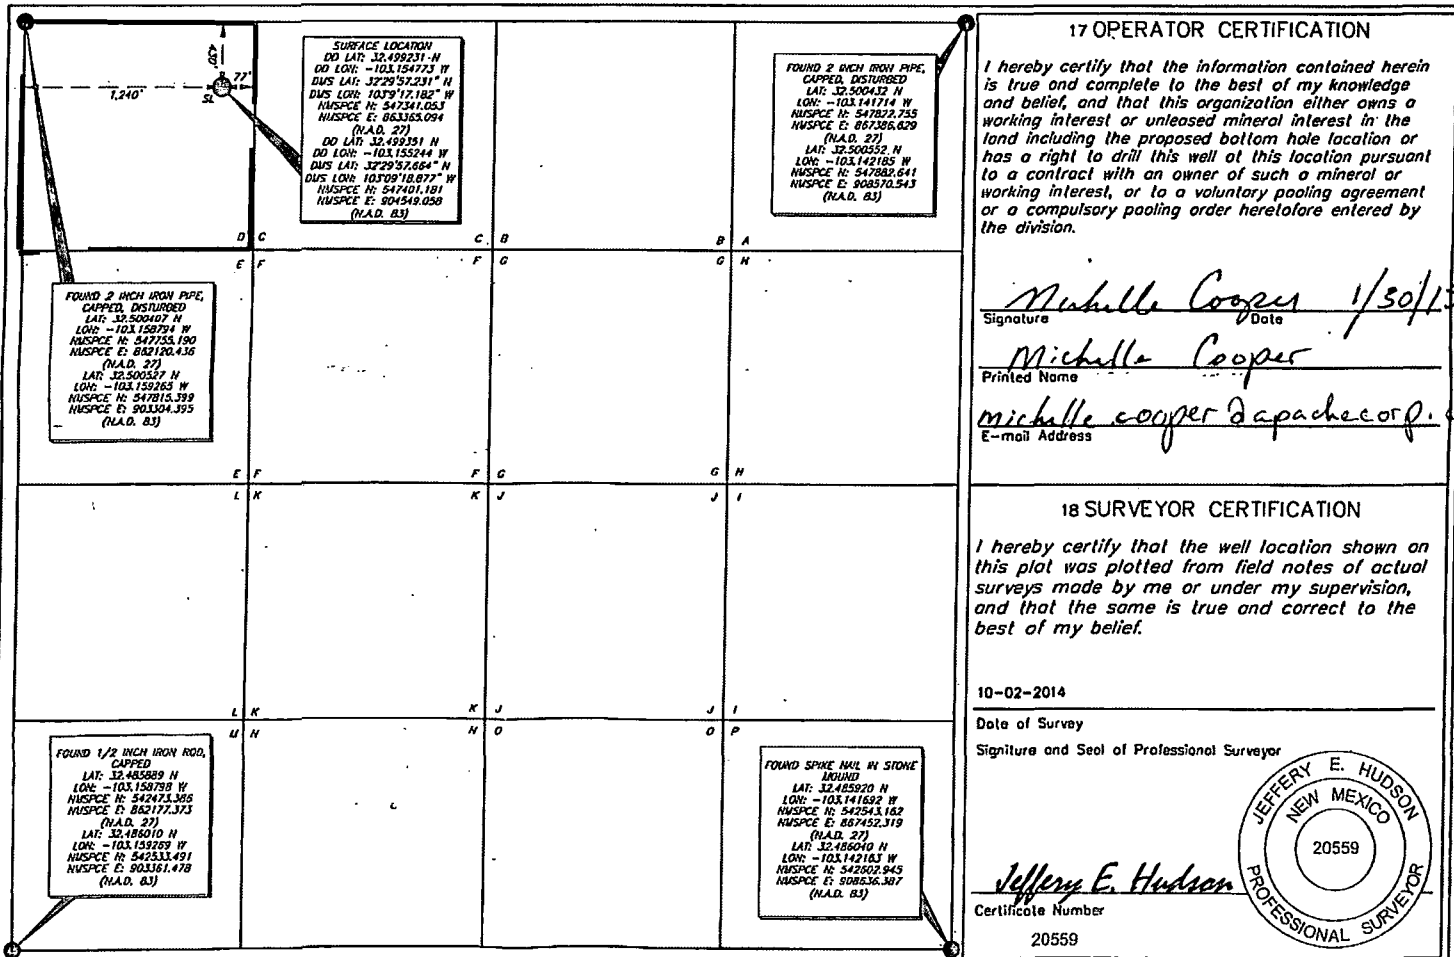 430'
77'
1,240'
SL
SURFACE LOCATION
DD LAT: 32.499231 N
DD LON: -103.154773 W
DMS LAT: 32°29'57.231" N
DMS LON: 103°9'17.182" W
NMSPCE N: 547341.053
NMSPCE E: 863365.094
(N.A.D. 27)
DD LAT: 32.499351 N
DD LON: -103.155244 W
DMS LAT: 32°29'57.664" N
DMS LON: 103°09'18.877" W
NMSPCE N: 547401.181
NMSPCE E: 904549.058
(N.A.D. 83)
FOUND 2 INCH IRON PIPE,
CAPPED, DISTURBED
LAT: 32.500432 N
LON: -103.141714 W
NMSPCE N: 547822.755
NMSPCE E: 867386.629
(N.A.D. 27)
LAT: 32.500552 N
LON: -103.142185 W
NMSPCE N: 547882.641
NMSPCE E: 908570.543
(N.A.D. 83)
D C C B B A
E F F G G H
FOUND 2 INCH IRON PIPE,
CAPPED, DISTURBED
LAT: 32.500407 N
LON: -103.158794 W
NMSPCE N: 547755.190
NMSPCE E: 862120.436
(N.A.D. 27)
LAT: 32.500527 N
LON: -103.159265 W
NMSPCE N: 547815.399
NMSPCE E: 903304.395
(N.A.D. 83)
E F F G G H
L K K J J I
L K K J J I
M N N O O P
FOUND 1/2 INCH IRON ROD,
CAPPED
LAT: 32.485889 N
LON: -103.158798 W
NMSPCE N: 542473.386
NMSPCE E: 862177.373
(N.A.D. 27)
LAT: 32.486010 N
LON: -103.159269 W
NMSPCE N: 542533.491
NMSPCE E: 903361.478
(N.A.D. 83)
FOUND SPIKE NAIL IN STONE
MOUND
LAT: 32.485920 N
LON: -103.141692 W
NMSPCE N: 542543.162
NMSPCE E: 867452.319
(N.A.D. 27)
LAT: 32.486040 N
LON: -103.142163 W
NMSPCE N: 542602.945
NMSPCE E: 908636.387
(N.A.D. 83)
17 OPERATOR CERTIFICATION
I hereby certify that the information contained herein
is true and complete to the best of my knowledge
and belief, and that this organization either owns a
working interest or unleased mineral interest in the
land including the proposed bottom hole location or
has a right to drill this well at this location pursuant
to a contract with an owner of such a mineral or
working interest, or to a voluntary pooling agreement
or a compulsory pooling order heretofore entered by
the division.
Michelle Cooper 1/30/15
Signature Date
Michelle Cooper
Printed Name
michelle.cooper@apachecorp.
E-mail Address
18 SURVEYOR CERTIFICATION
I hereby certify that the well location shown on
this plat was plotted from field notes of actual
surveys made by me or under my supervision,
and that the same is true and correct to the
best of my belief.
10-02-2014
Date of Survey
Signiture and Seal of Professional Surveyor
JEFFERY E. HUDSON
NEW MEXICO
20559
PROFESSIONAL SURVEYOR
Jeffery E. Hudson
Certificate Number
20559